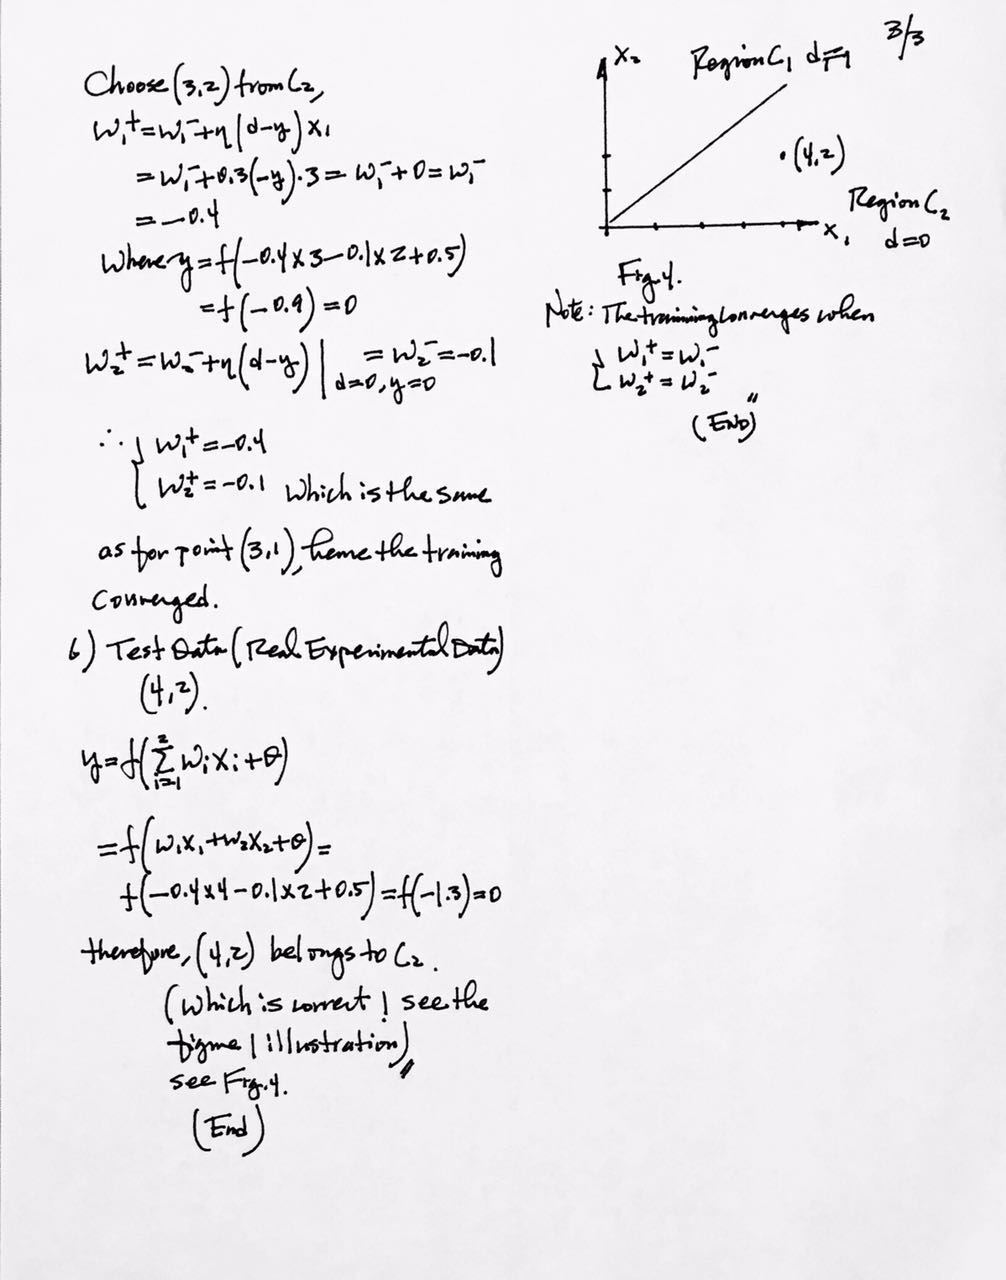 3/3
Choose (3,2) from C₂,
W₁⁺=W₁⁻+η(d-y)X₁
=W₁⁻+0.3(-y)·3=W₁⁻+0=W₁⁻
=-0.4
Where y=f(-0.4×3-0.1×2+0.5)
=f(-0.9)=0
W₂⁺=W₂⁻+η(d-y)|d=0,y=0 =W₂⁻=-0.1
∴ { W₁⁺=-0.4
W₂⁺=-0.1 Which is the same
as for point (3,1), hence the training
Converged.
6) Test Data (Real Experimental Data)
(4,2).
y=f(∑i=1 2 WiXi+θ)
=f(W₁X₁+W₂X₂+θ)=
f(-0.4×4-0.1×2+0.5)=f(-1.3)=0
therefore, (4,2) belongs to C₂.
(Which is correct! see the
figure 1 illustration)〃
see Fig.4.
(End)
X₂
Region C₁ d=1
·(4,2)
Region C₂
d=0
X₁
Fig.4.
Note: The training converges when
{ W₁⁺=W₁⁻
W₂⁺=W₂⁻
(END)〃